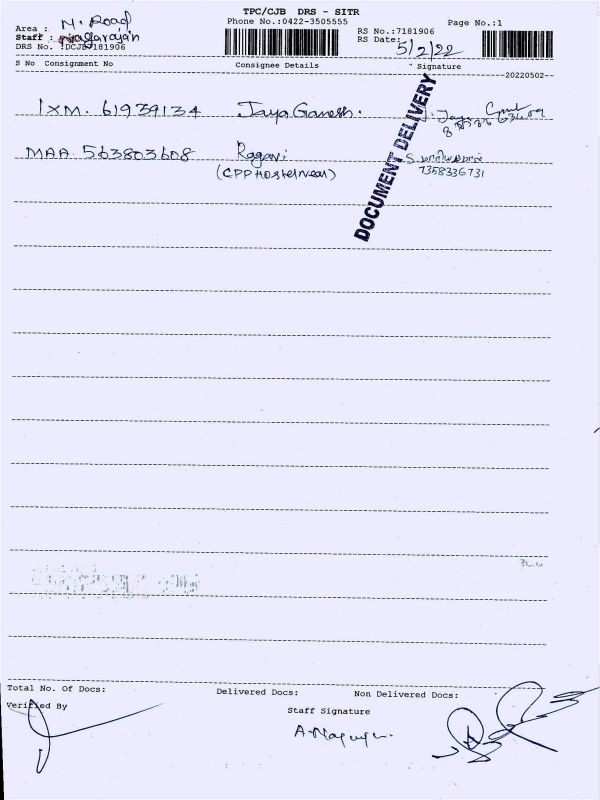 TPC/CJB DRS - SITR
Phone No.:0422-3505555
Page No.:1
Area : N. Road
RS No.:7181906
Staff : Nagarajan
RS Date: 5/2/22
DRS No. :DCJB7181906
S No Consignment No Consignee Details Signature
20220502
IXM. 61939134 Jaya Ganesh.
MAA 563803608 Ragavi
7358336731
(CPP Hostel near)
DOCUMENT DELIVERY
Total No. Of Docs: Delivered Docs: Non Delivered Docs:
Verified By
Staff Signature